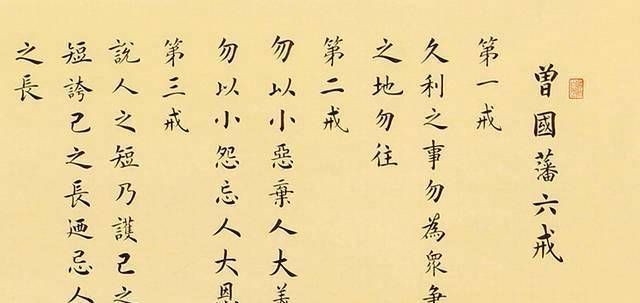 曾國藩六戒
第一戒
久利之事勿為眾爭
之地勿往
第二戒
勿以小惡棄人大美
勿以小怨忘人大恩
第三戒
説人之短乃護己之
短誇己之長迺忌人
之長